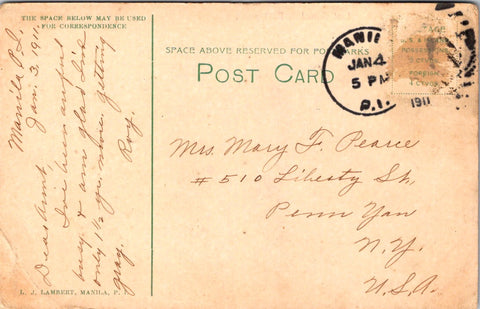 THE SPACE BELOW MAY BE USED
FOR CORRESPONDENCE
Manila P.I.
Jan. 3, 1911.
Dear Aunt,
I've been awful
busy & am glad. Just
only 1½ yr. more. Getting
gray.
Roy.
L. J. LAMBERT, MANILA, P. I.
SPACE ABOVE RESERVED FOR POSTMARKS
POST CARD
MANILA
JAN 4
5 PM
P.I.
1911
Mrs. Mary F. Pearce
#510 Liberty St,
Penn Yan
N.Y.
U.S.A.